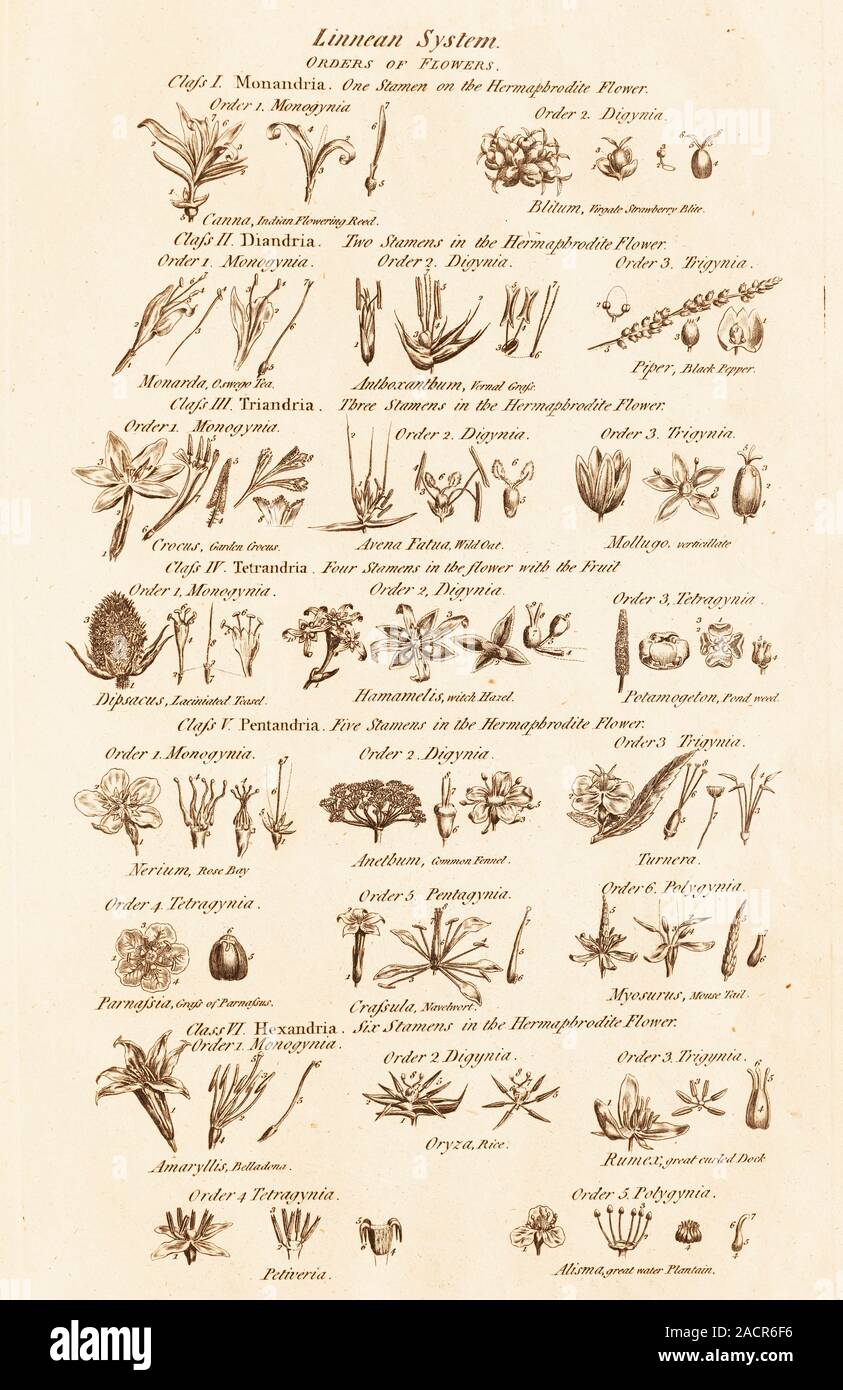 Linnean System.
ORDERS OF FLOWERS.
Claſs I. Monandria. One Stamen on the Hermaphrodite Flower.
Order 1. Monogynia
Order 2. Digynia.
Canna, Indian Flowering Reed.
Blitum, Virgate Strawberry Blite.
Claſs II. Diandria. Two Stamens in the Hermaphrodite Flower.
Order 1. Monogynia.
Order 2. Digynia.
Order 3. Trigynia.
Monarda, Oswego Tea.
Anthoxanthum, Vernal Graſs.
Piper, Black Pepper.
Claſs III. Triandria. Three Stamens in the Hermaphrodite Flower.
Order 1. Monogynia.
Order 2. Digynia.
Order 3. Trigynia.
Crocus, Garden Crocus.
Avena Fatua, Wild Oat.
Mollugo, verticillate
Claſs IV. Tetrandria. Four Stamens in the flower with the Fruit
Order 1, Monogynia.
Order 2, Digynia.
Order 3, Tetragynia.
Dipsacus, Laciniated Teasel.
Hamamelis, witch Hazel.
Potamogeton, Pond weed.
Claſs V. Pentandria. Five Stamens in the Hermaphrodite Flower.
Order 1. Monogynia.
Order 2. Digynia.
Order 3 Trigynia.
Nerium, Rose Bay
Anethum, Common Fennel.
Turnera.
Order 4. Tetragynia.
Order 5. Pentagynia.
Order 6. Polygynia.
Parnaſsia, Graſs of Parnaſsus.
Craſsula, Navelwort.
Myosurus, Mouse Tail.
Class VI. Hexandria. Six Stamens in the Hermaphrodite Flower.
Order 1. Monogynia.
Order 2 Digynia.
Order 3. Trigynia.
Amaryllis, Belladona.
Oryza, Rice.
Rumex, great curled Dock
Order 4 Tetragynia.
Order 5. Polygynia.
Petiveria.
Alisma, great water Plantain.
alamy
Image ID: 2ACR6F6
www.alamy.com